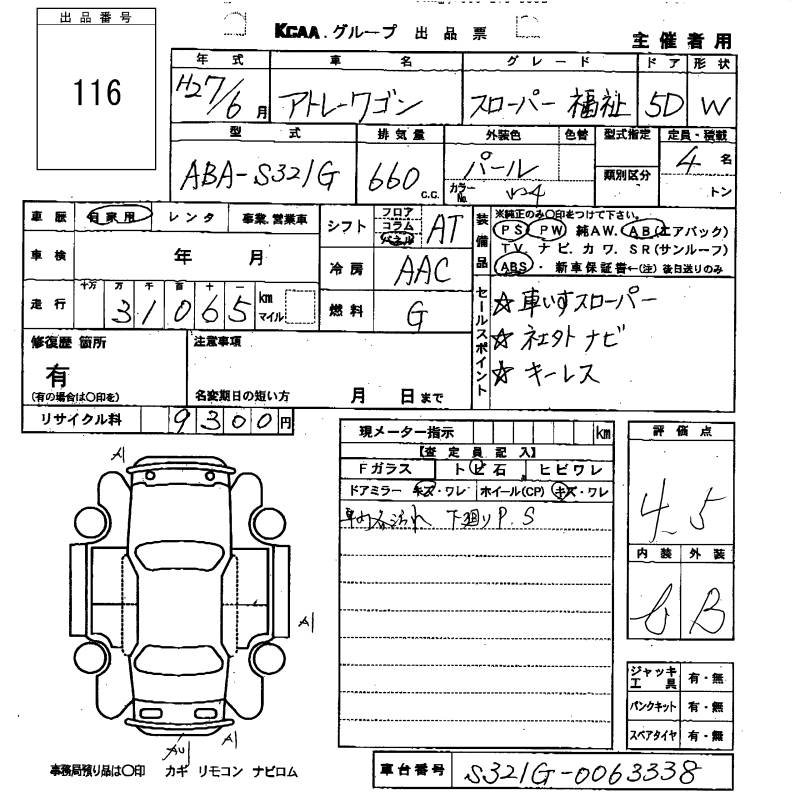 出品番号
116
KCAA.グループ 出品票
主催者用
年式 車名 グレード ドア 形状
H27/6月 アトレーワゴン スローパー 福祉 5D W
型式 排気量 外装色 色替 型式指定 定員・積載
ABA-S321G 660 C.C. パール カラーNo. W24 類別区分 4名 トン
車歴 自家用 レンタ 事業.営業車
シフト フロア コラム パネル AT
車検 年 月
冷房 AAC
走行 十万 万 千 百 十 一
31065 km マイル
燃料 G
装備品
※純正のみ○印をつけて下さい。
PS PW 純AW. AB(エアバック)
TV. ナビ. カワ. SR(サンルーフ)
ABS・ 新車保証書←(注)後日送りのみ
セールスポイント
☆ 車いすスローパー
☆ 社外ナビ
☆ キーレス
修復歴 箇所
有
(有の場合は○印を)
注意事項
名変期日の短い方 月 日まで
リサイクル料 9300円
現メーター指示 km
【査定員記入】
Fガラス トビ石 ヒビワレ
ドアミラー キズ・ワレ ホイール(CP) キズ・ワレ
車内よごれ 下廻りP.S
評価点
4.5
内装 外装
B
A1
A1
AU
A1
ジャッキ工具 有・無
パンクキット 有・無
スペアタイヤ 有・無
事務局預り品は○印 カギ リモコン ナビロム
車台番号 S321G-0063338